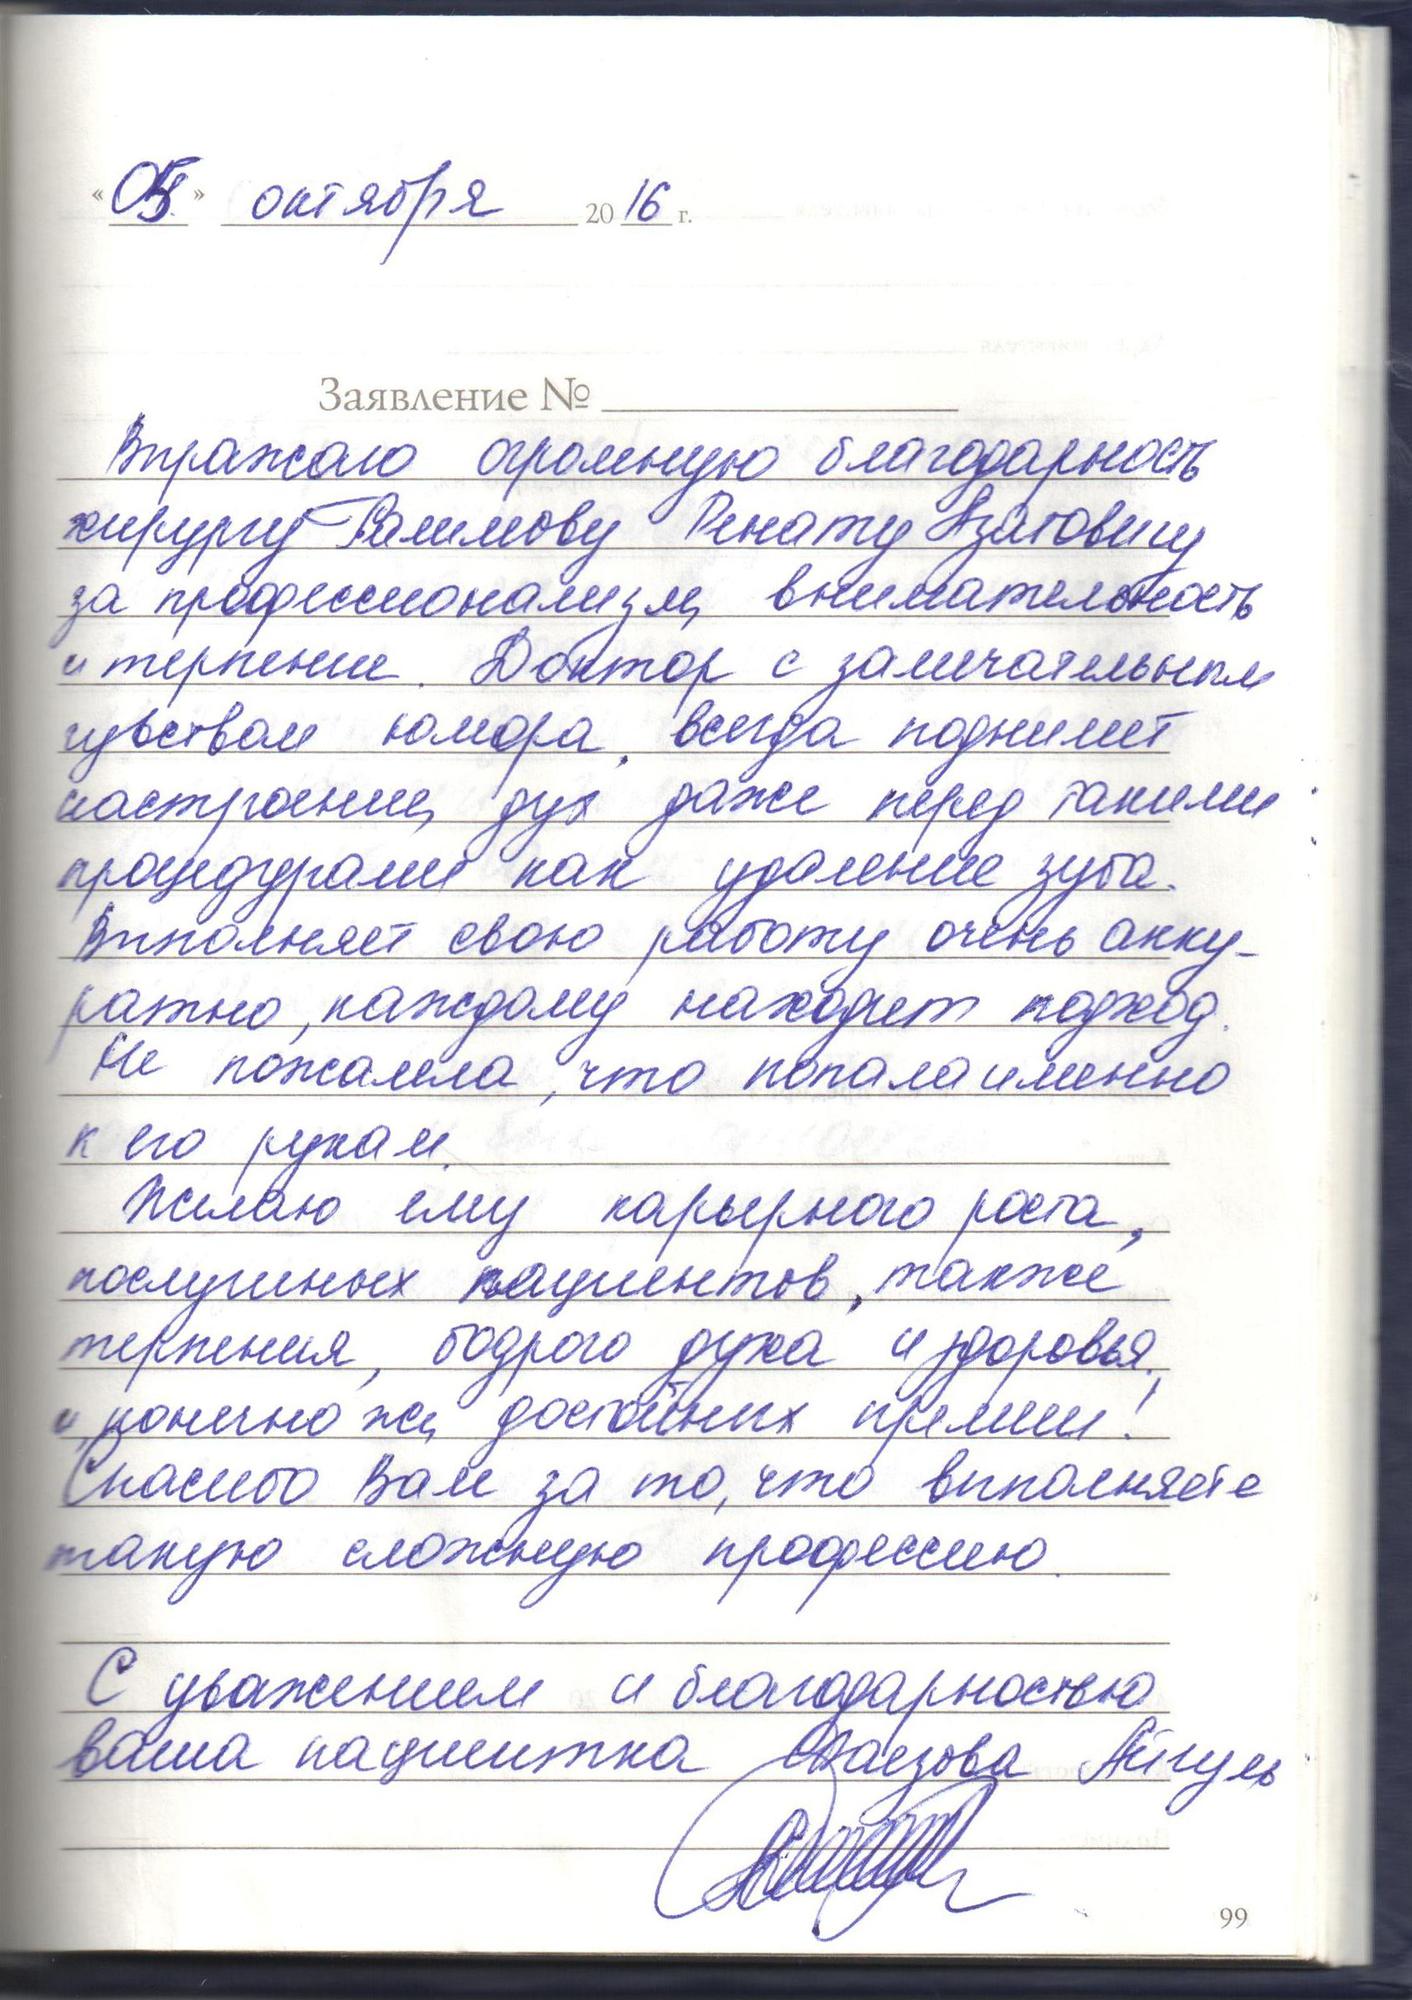 « 05 » октября 20 16 г.
Заявление №
Выражаю огромную благодарность
хирургу Салимову Ренату Азатовичу
за профессионализм, внимательность
и терпение. Доктор с замечательным
чувством юмора, всегда поднимет
настроение, дух даже перед такими
процедурами как удаление зуба.
Выполняет свою работу очень акку-
ратно, каждому находит подход.
Не пожалела, что попала именно
к его рукам.
Желаю ему карьерного роста,
послушных пациентов, также
терпения, бодрого духа и здоровья,
и, конечно же, достойных премии!
Спасибо Вам за то, что выполняете
такую сложную профессию.
С уважением и благодарностью
ваша пациентка Фаезова Айгуль
99